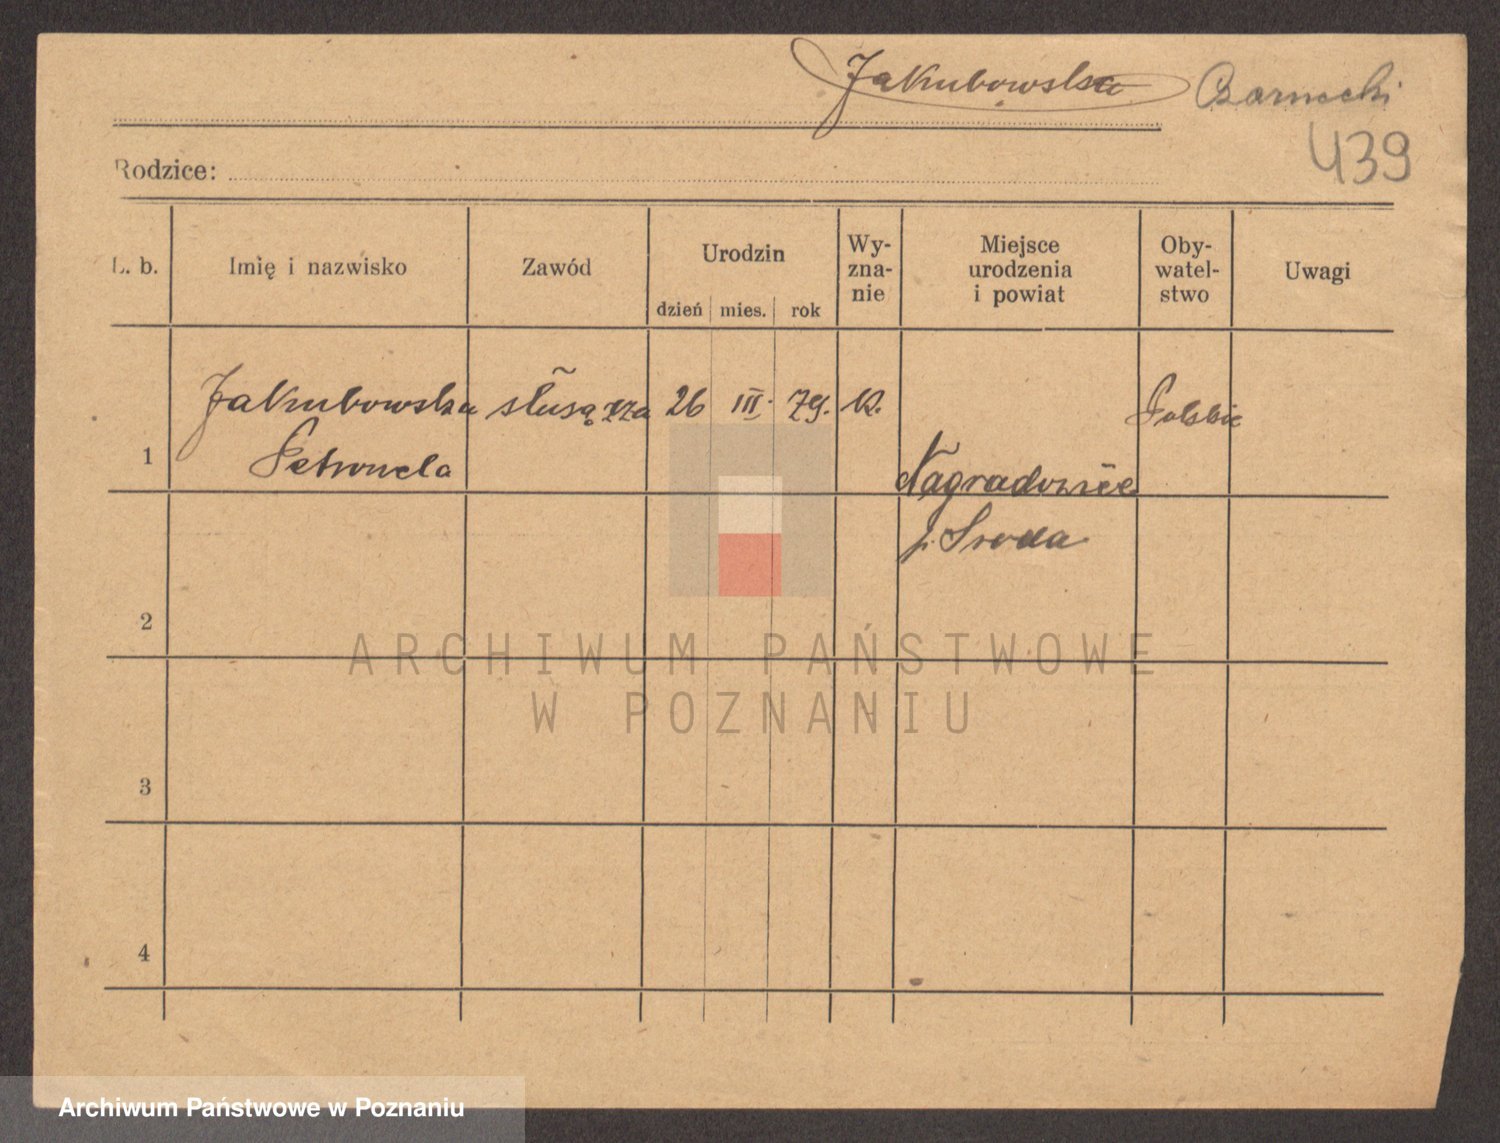 Jakubowska Czarnecki
439
Rodzice:
L. b. Imię i nazwisko Zawód Urodzin dzień mies. rok Wy-zna-nie Miejsce urodzenia i powiat Oby-watel-stwo Uwagi
1 Jakubowska służąca 26 III. 79. K. Polskie
Petronela Nagradowice
p. Sroda
2
3
4
ARCHIWUM PAŃSTWOWE
W POZNANIU
Archiwum Państwowe w Poznaniu